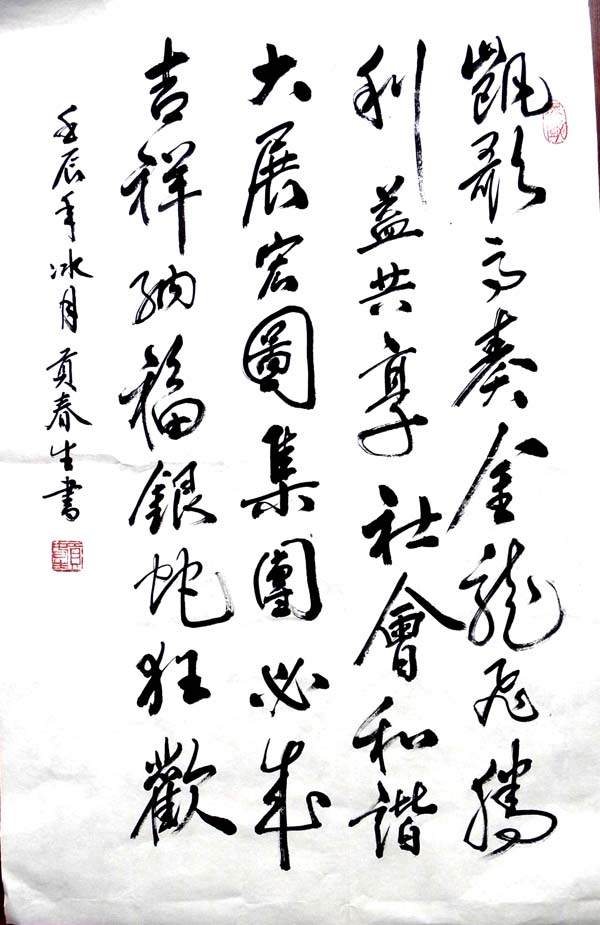 凱歌高奏金龍飛騰
利益共享社會和諧
大展宏圖集團必成
吉祥納福銀蛇狂歡
壬辰年冰月貟春生書